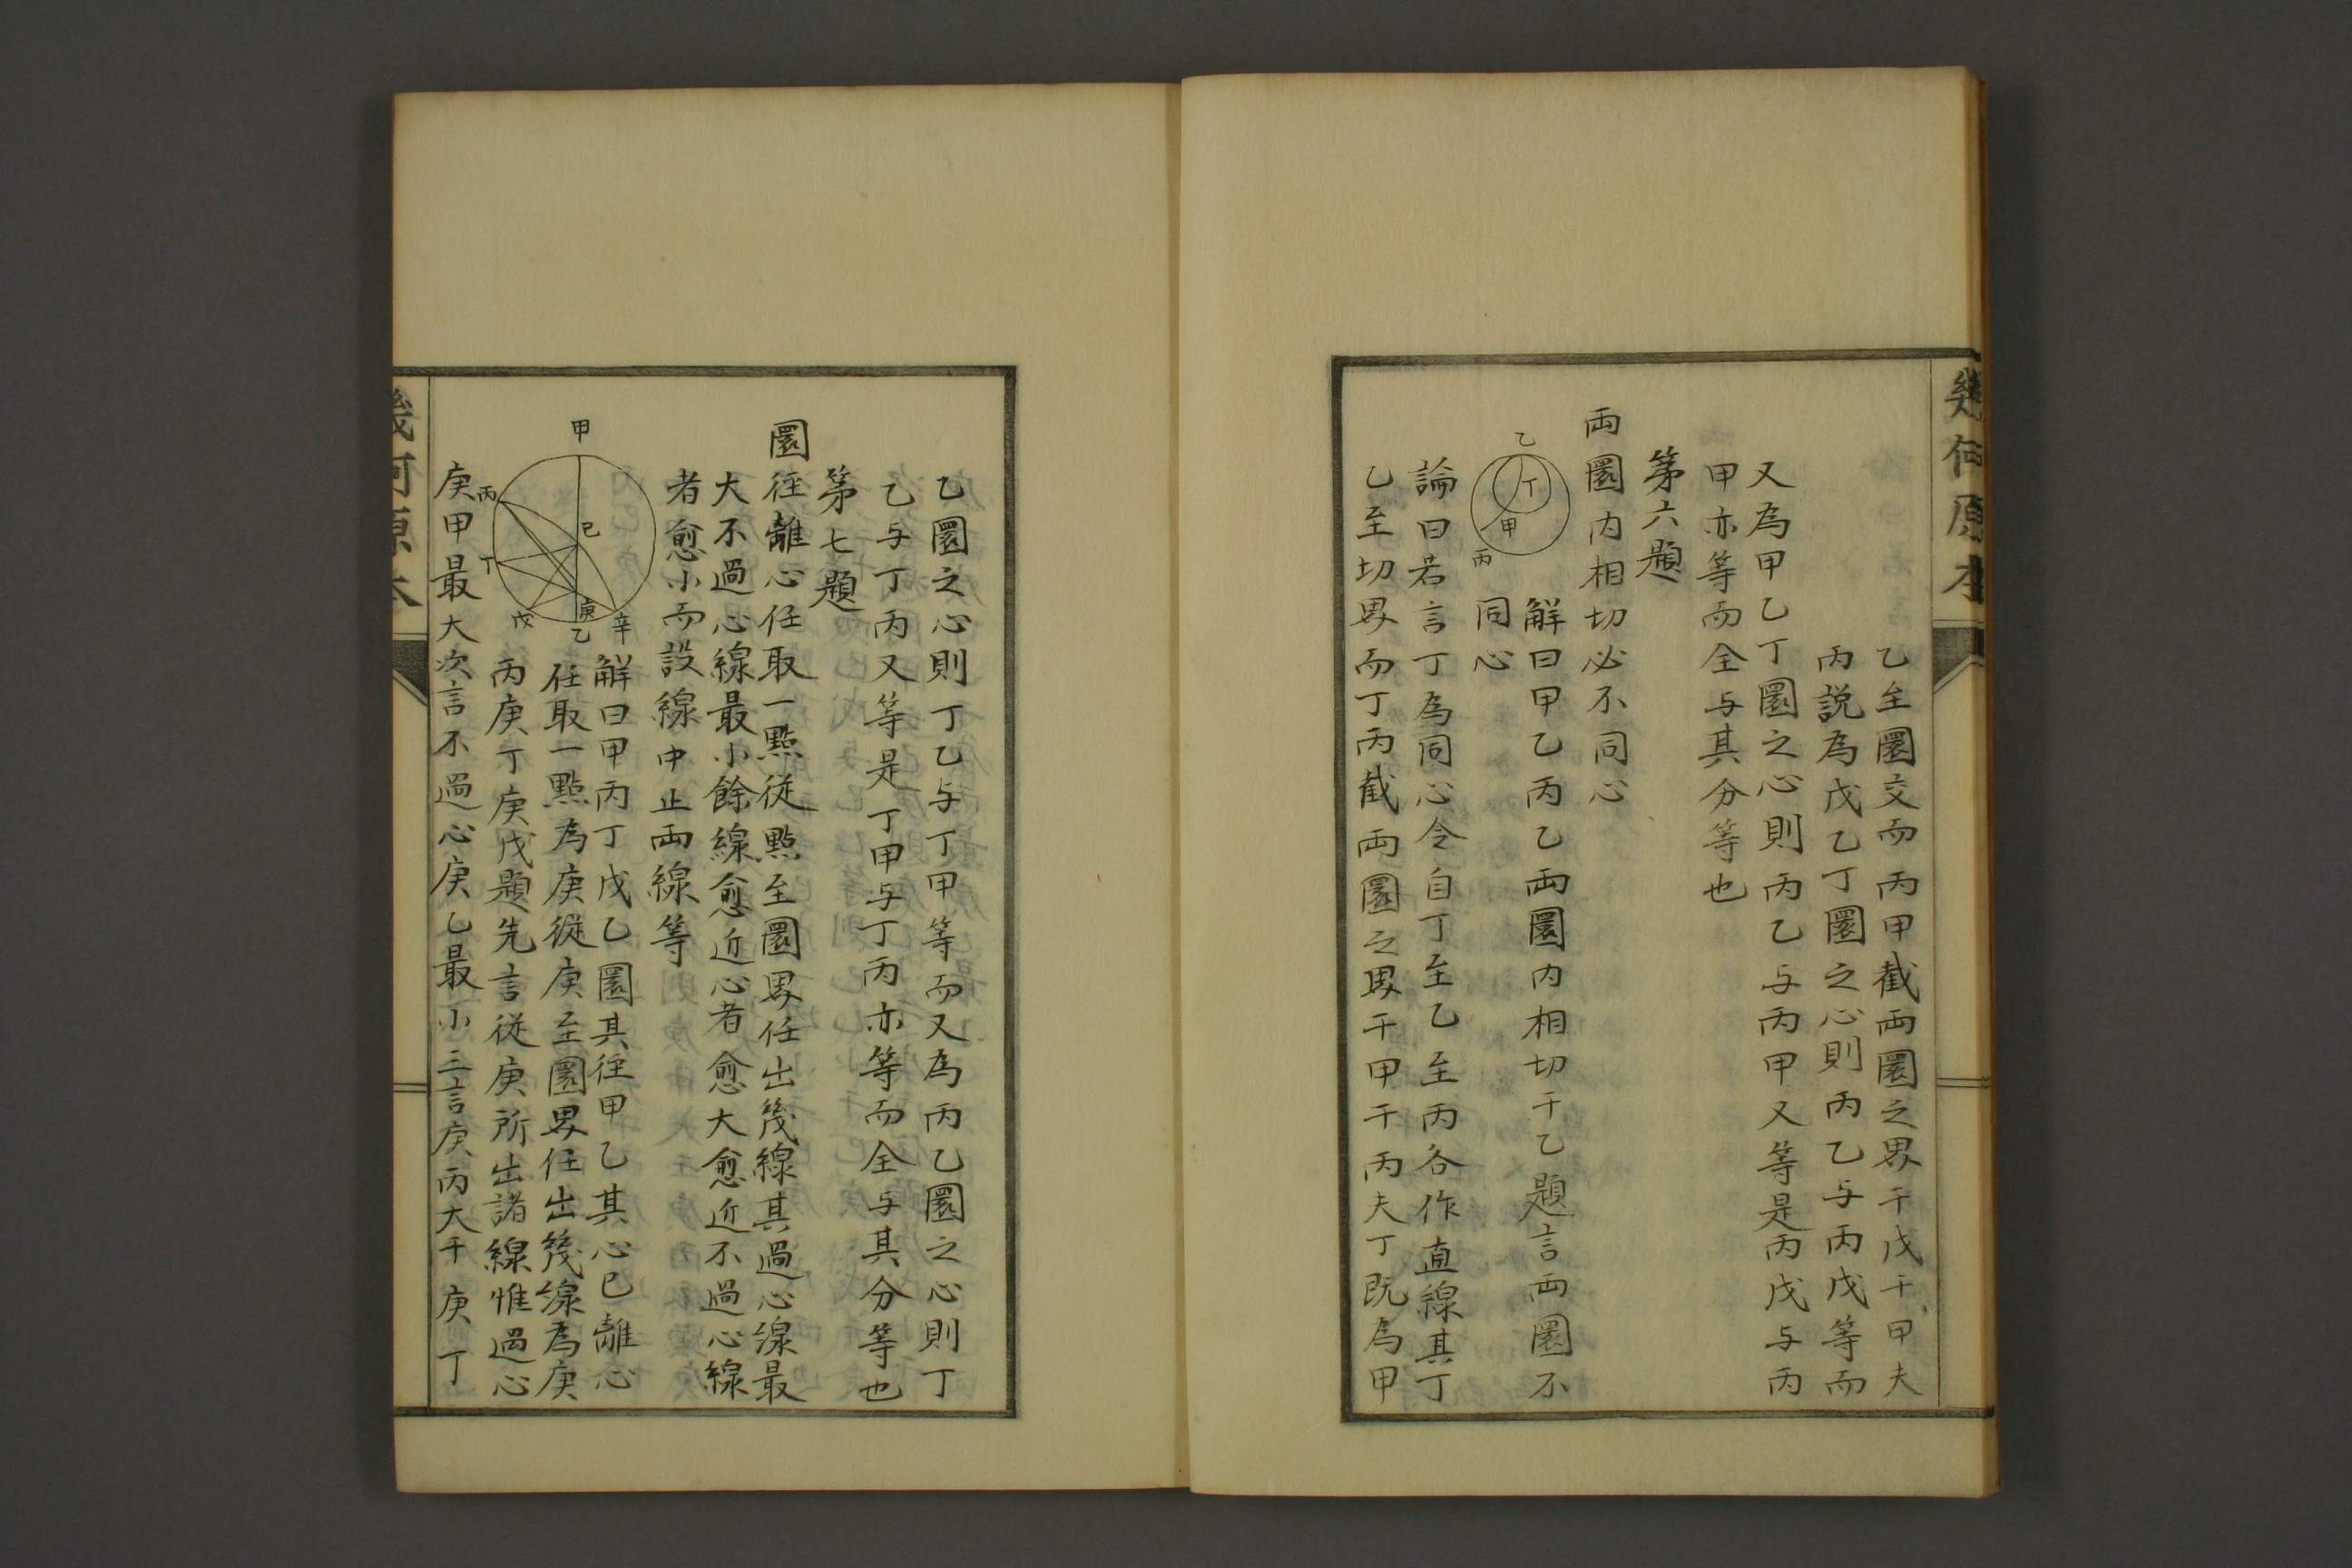 幾何原本
乙至圜交而丙甲截両圜之界于戊于甲夫
丙説為戊乙丁圜之心則丙乙与丙戊等而
又為甲乙丁圜之心則丙乙与丙甲又等是丙戊与丙
甲亦等而全与其分等也
第六題
両圜内相切必不同心
解曰甲乙丙乙両圜内相切于乙題言両圜不
同心
乙
丁
甲
丙
論曰若言丁為同心令自丁至乙至丙各作直線其丁
乙至切界而丁丙截両圜之界于甲于丙夫丁既為甲
乙圜之心則丁乙与丁甲等而又為丙乙圜之心則丁
乙与丁丙又等是丁甲与丁丙亦等而全与其分等也
第七題
圜徑離心任取一點從點至圜界任出幾線其過心線最
大不過心線最小餘線愈近心者愈大愈近不過心線
者愈小而設線中止両線等
甲
丙
丁
戊
己
庚
乙
辛
解曰甲丙丁戊乙圜其徑甲乙其心已離心
任取一點為庚從庚至圜界任出幾線為庚
丙庚丁庚戊題先言從庚所出諸線惟過心
庚甲最大次言不過心庚乙最小三言庚丙大于庚丁
幾何原本